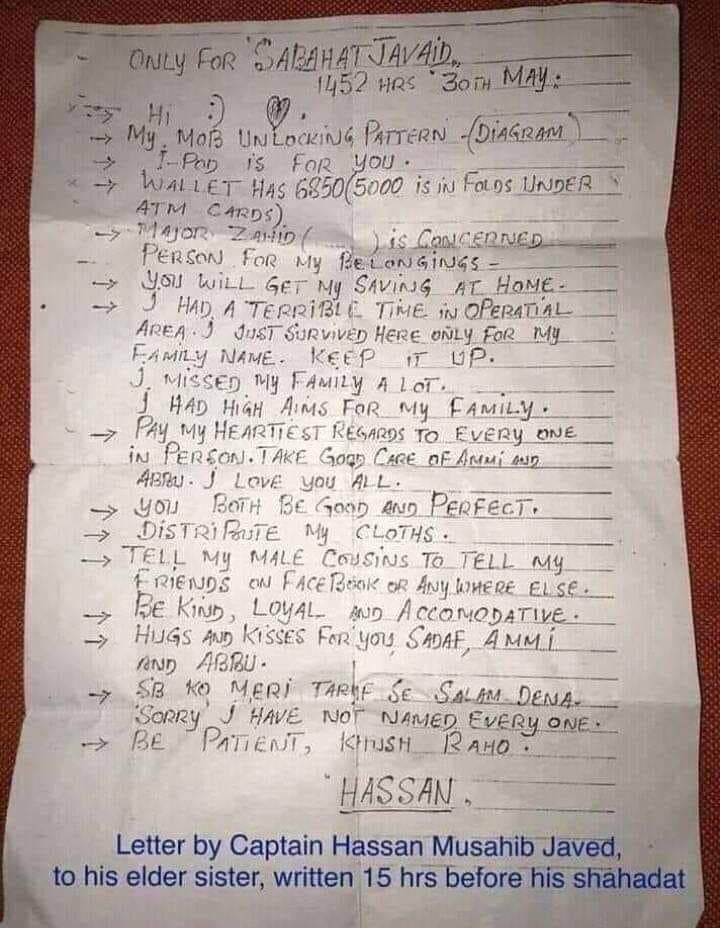 ONLY FOR "SABAHAT JAVAID"
1452 HRS 30TH MAY:
→ Hi :) ♡.
→ MY MOB UNLOCKING PATTERN -(DIAGRAM)
→ I-POD is FOR YOU.
→ WALLET HAS 6850(5000 is iN FOLDS UNDER
ATM CARDS)
→ MAJOR ZAHID ( ) is CONCERNED
PERSON FOR MY BELONGINGS -
→ YOU WILL GET MY SAVING AT HOME.
→ I HAD A TERRIBLE TIME iN OPERATIAL
AREA. I JUST SURVIVED HERE ONLY FOR MY
FAMILY NAME. KEEP IT UP.
I MISSED MY FAMILY A LOT.
I HAD HIGH AIMS FOR MY FAMILY.
→ PAY MY HEARTIEST REGARDS TO EVERY ONE
iN PERSON. TAKE GOOD CARE OF AMMI AND
ABBU. I LOVE YOU ALL.
→ YOU BOTH BE GOOD AND PERFECT.
→ DISTRIBUTE MY CLOTHS.
→ TELL MY MALE COUSINS TO TELL MY
FRIENDS ON FACEBOOK OR ANY WHERE ELSE.
→ BE KIND, LOYAL AND ACCOMODATIVE.
→ HUGS AND KISSES FOR YOU, SADAF, AMMI
AND ABBU.
→ SB KO MERI TARHF SE SALAM DENA.
'SORRY' I HAVE NOT NAMED EVERY ONE.
→ BE PATIENT, KHUSH RAHO.
"HASSAN.
Letter by Captain Hassan Musahib Javed,
to his elder sister, written 15 hrs before his shahadat